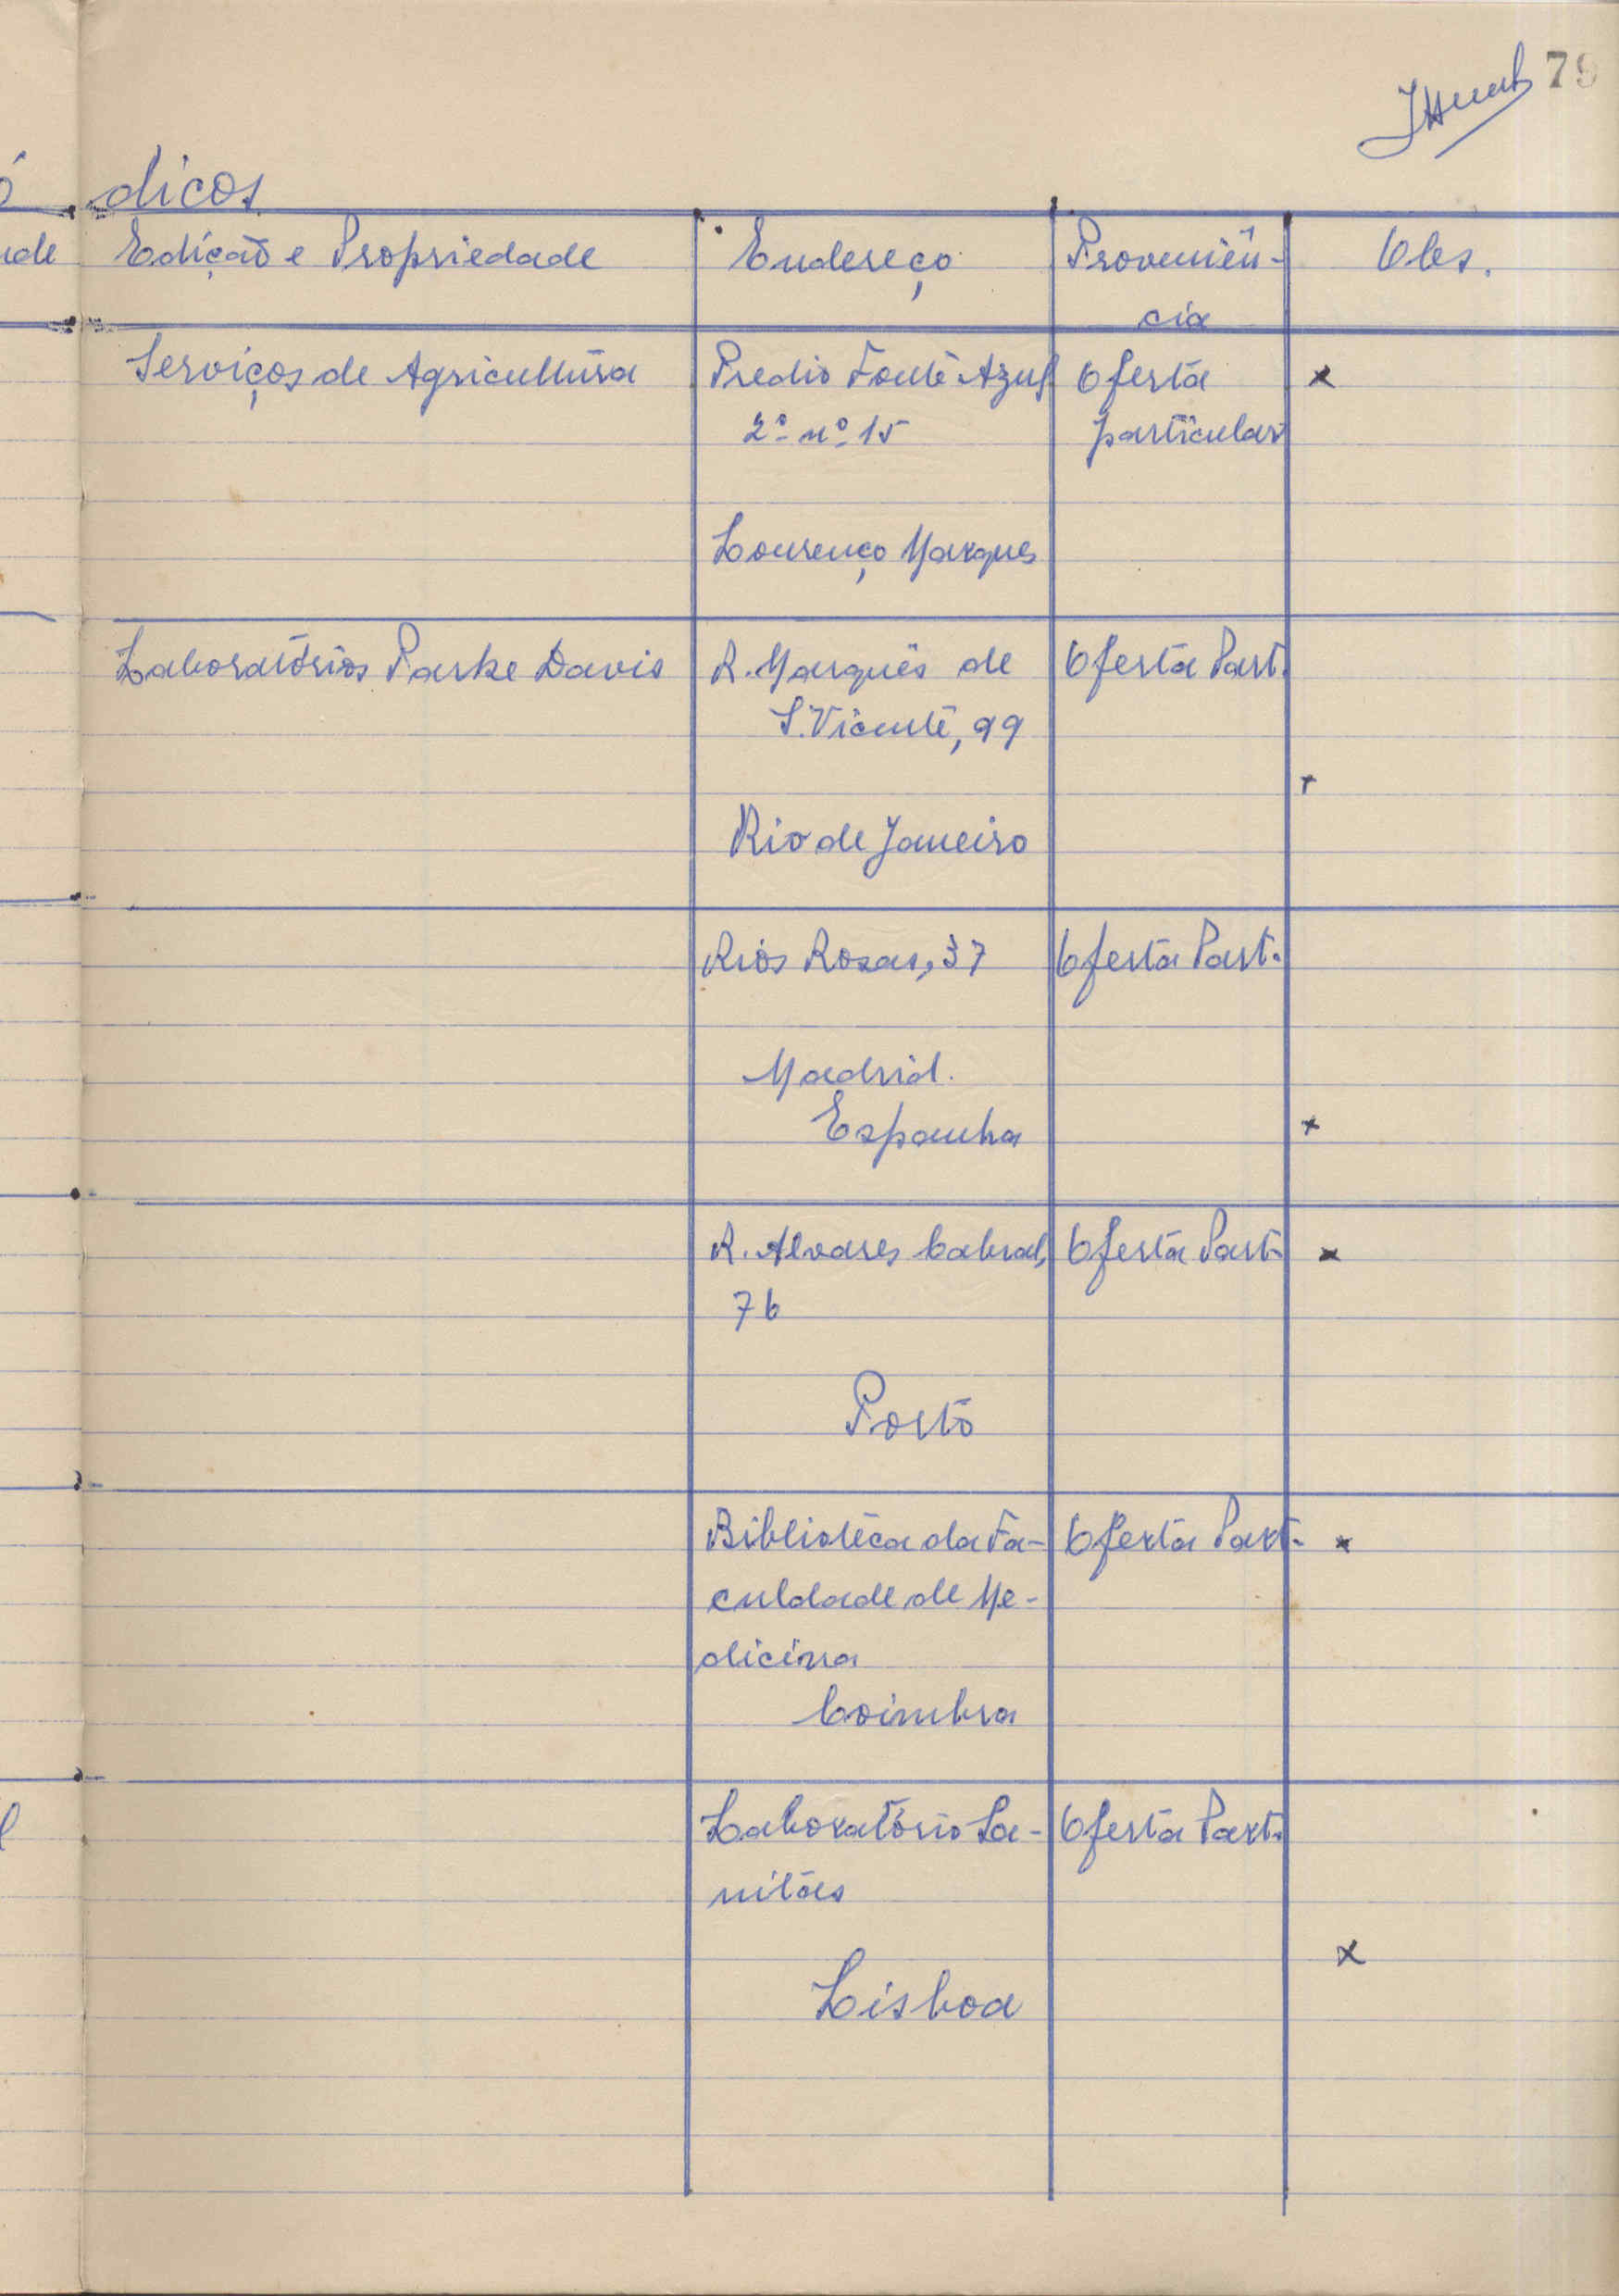 79
dicos
de Edição e Propriedade Endereço Proveniên- Obs.
cia
Serviços de Agricultura Predio Fonte Azul Oferta x
2º nº 15 particular
Lourenço Marques
Laboratórios Parke Davis R. Marquês de Oferta Part.
S. Vicente, 99
x
Rio de Janeiro
Rios Rosas, 37 Oferta Part.
Madrid.
Espanha x
R. Alvares Cabral, Oferta Part. x
76
Porto
Biblioteca da Fa- Oferta Part. x
culdade de Me-
dicina
Coimbra
Laboratório Sa- Oferta Part.
nitas
x
Lisboa